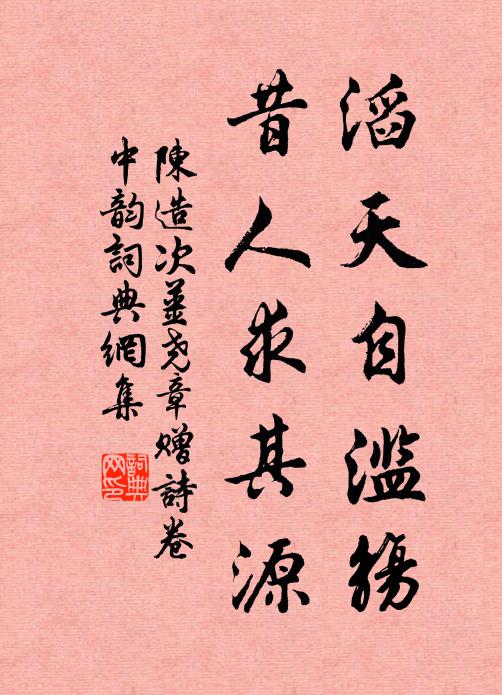 滔天自滥觴
昔人求其源
陳造次薑尧章贈詩卷
中韵詞典網集
詞典
网印